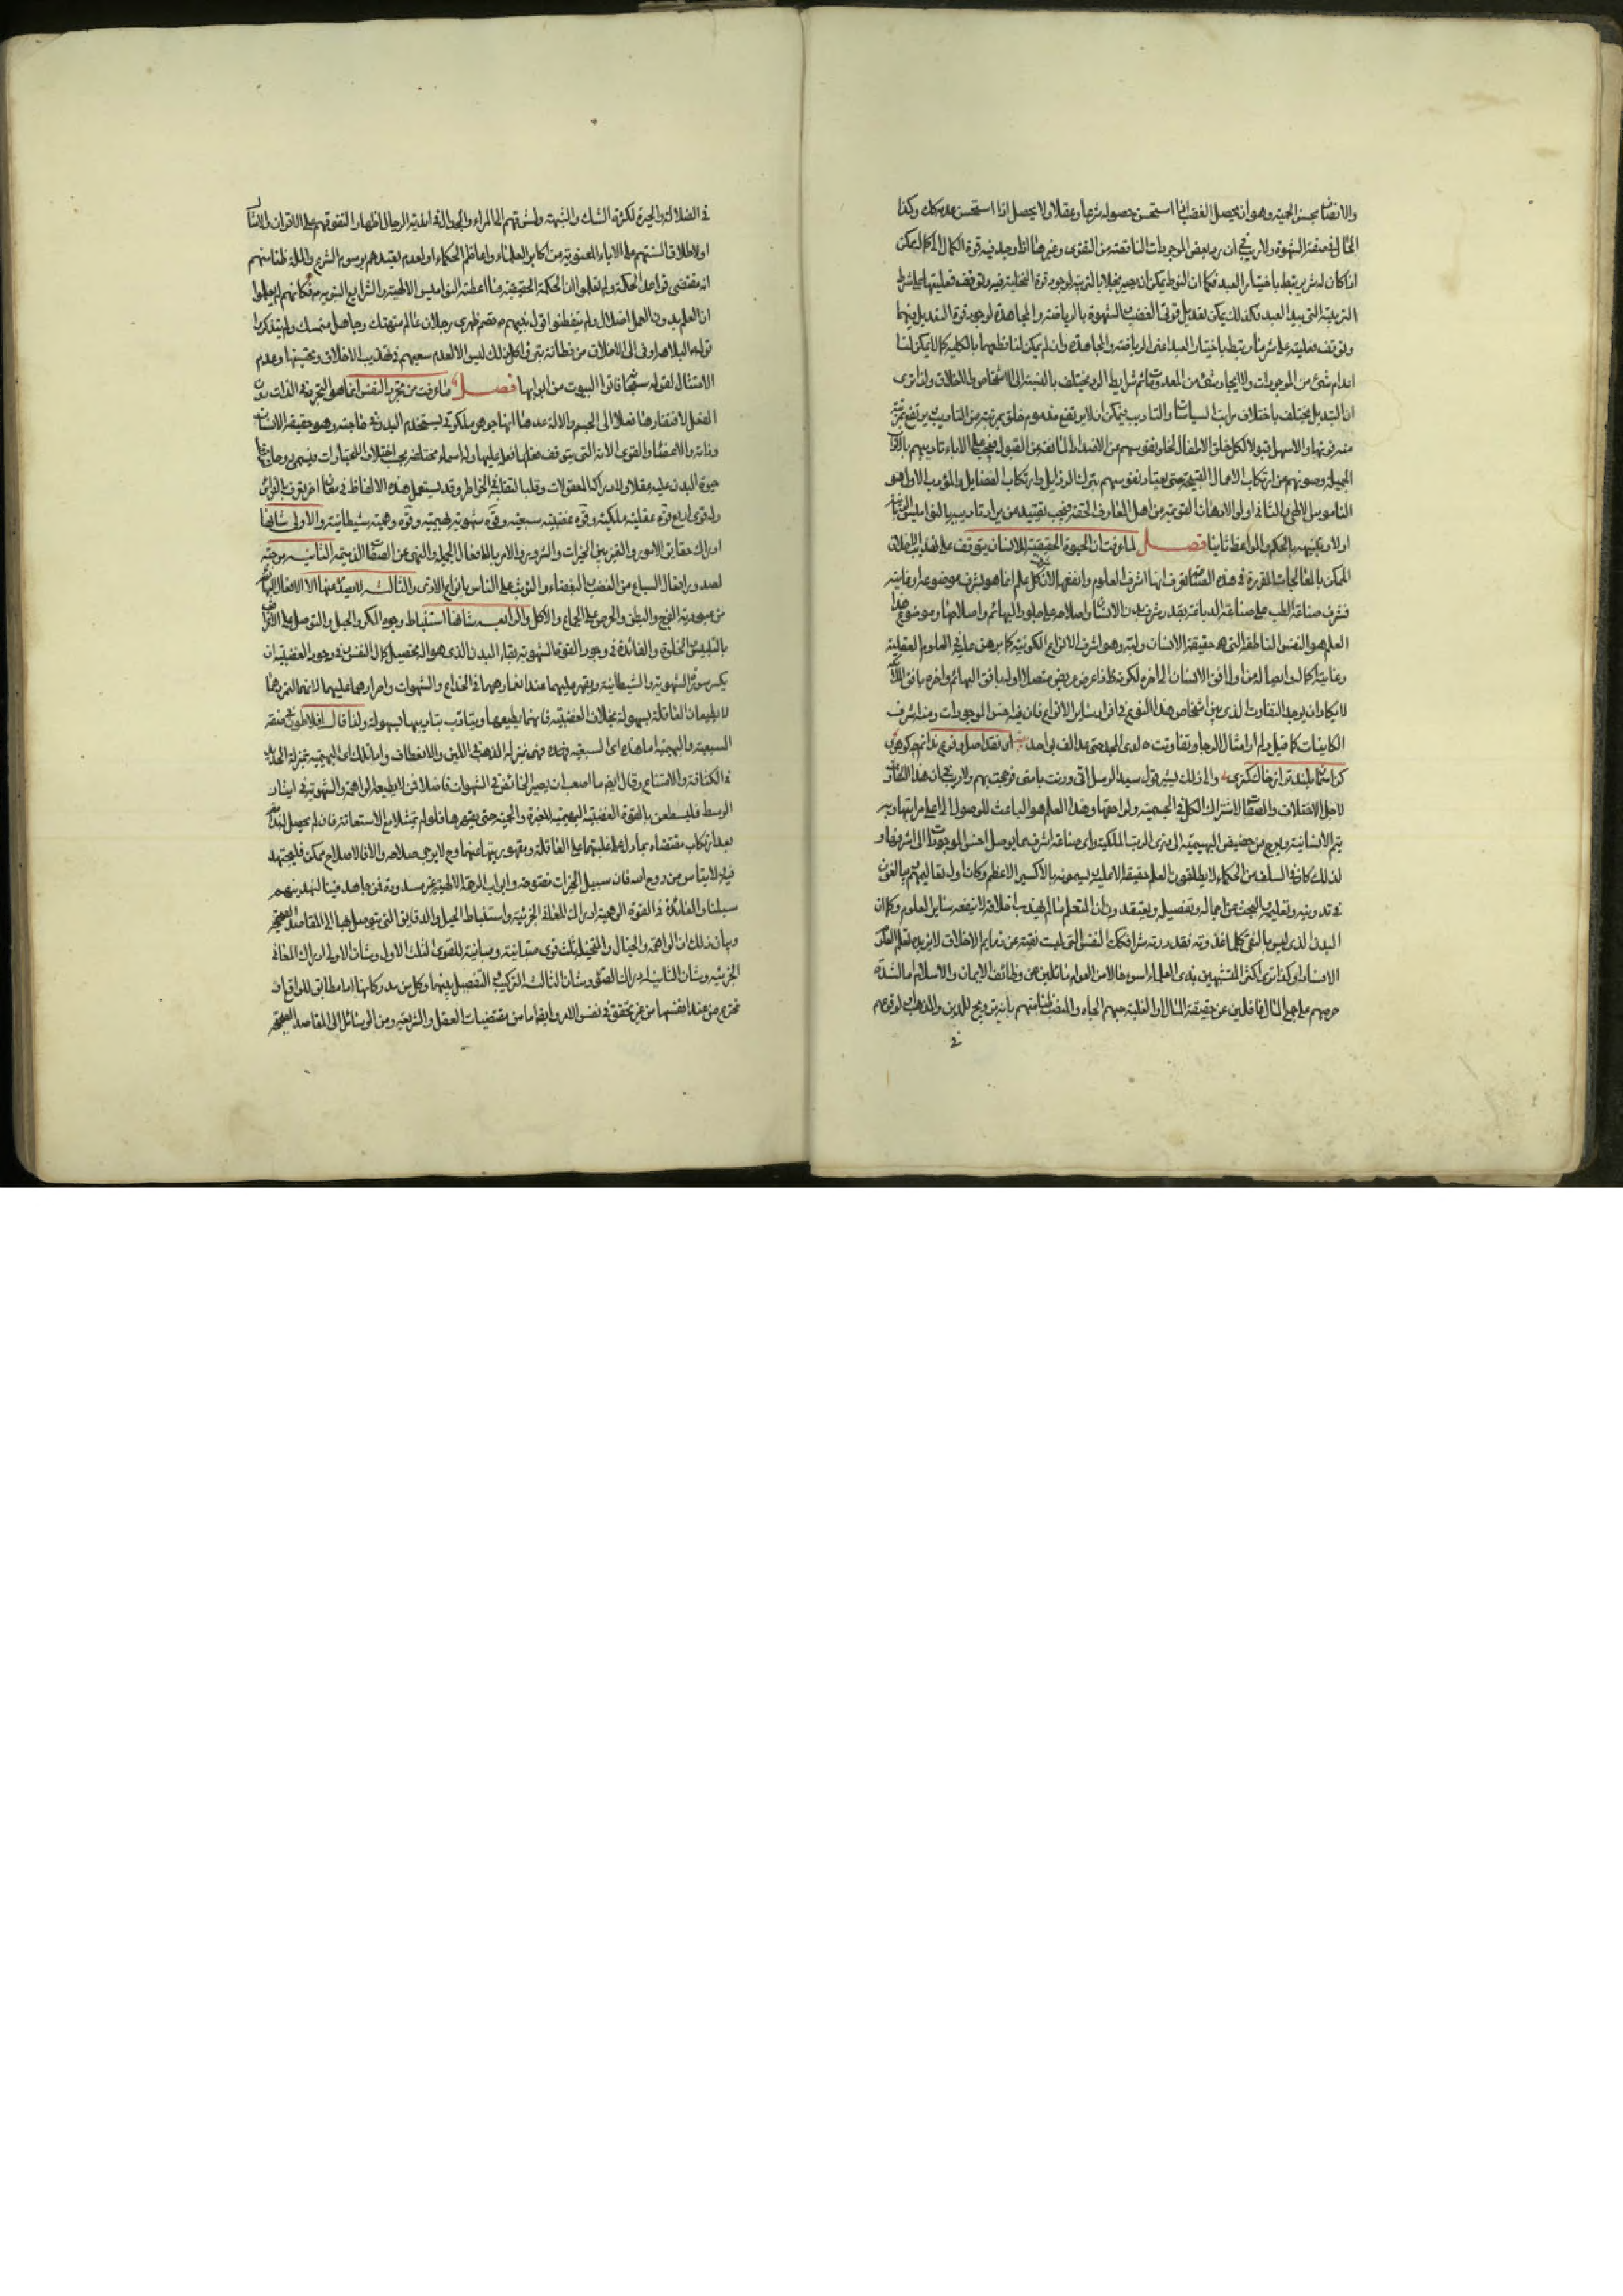 والاتصاف بحسن الحمية وهو ان يحصل الغضب اذا استحسن حصوله شرعا وعقلا ولا يحصل اذا استحسن عدمه كك وكذا
الحال في صفة الشهوة ولا ريب في ان بعض الموجودات الناقصة من القوى وغيرها اذا وجد فيه قوة الكمال الى كمال يمكن
اذا كان له شرط يرتبط باختيار العبد فكما ان النواة يمكن ان يصير نخلا بالتربية لوجود قوة النخلية فيه وتوقف فعليتها على شرط
التربية التي بيد العبد فكذلك يمكن تعديل قوتي الغضب والشهوة بالرياضة والمجاهدة لوجود قوة التعديل فيهما
وتوقف فعليته على شرط يرتبط باختيار العبد اعنى الرياضة والمجاهدة وان لم يمكن لنا قطعهما بالكلية كما لا يمكن لنا
اعدام شئ من الموجودات ولا ايجاد شئ من المعدومات ثم شرايط الرد يختلف بالنسبة الى الاشخاص والاخلاق ولذا ترى
ان التبديل يختلف باختلاف مراتب السياسات والتاديب فيمكن ان لا يرتفع مذموم خلق بمرتبة من التاديب ويرتفع بمرتبة
منه فوقها والاسهل قبولا لكل خلق الاطفال لخلو نفوسهم عن الاضداد المانعة عن القبول فيجب على الآباء تاديبهم بالآداب
الجميلة وصونهم عن ارتكاب الاعمال القبيحة حتى يعتاد نفوسهم بترك الرذايل وارتكاب الفضايل والمؤدب الاول هو
الناموس الالهي والثاني اولوا الاذهان القويمة من اهل المعارف الحقة فيجب تقييد من يراد تاديبه بالنواميس الشرعية
اولا وتنبيهه بالحكم والمواعظ ثانيا فصل لما عرفت ان الحيوة الحقيقية للانسان يتوقف على تهذيب الاخلاق
الممكن بالمعالجات المقررة في هذه الصناعة تعرف انها اشرف العلوم وانفعها لان شرف كل علم انما هو بشرف موضوعه او غايته
فشرف صناعة الطب على صناعة الدباغة بقدر شرف بدن الانسان واصلاحه على جلود البهائم واصلاحها وموضوع هذا
العلم هو النفس الناطقة التي هي حقيقة الانسان ولبه وهو اشرف الانواع الكونية كما برهن عليه في العلوم العقلية
وغايته اكماله وايصاله من اول افق الانسان الى آخره لكونه ذا عرض عريض متصلا اوله بافق البهائم وآخره بافق الملائكة
لا يكاد ان يوجد التفاوت الذي بين اشخاص هذا النوع في افراد ساير الانواع فان فيه اخس الموجودات ومنه اشرف
الكاينات كما قيل ولم ار امثال الرجال تفاوتت لدى المجد حتى عد الف بواحد
والى ذلك يشير قول سيد الرسل انى وزنت بامتى فرجحت بهم ولا ريب في ان هذا التفاوت
لاجل الاختلاف في الاخلاق والصفات لاشتراك الكل في الجسمية ولواحقها وهذا العلم هو الباعث للوصول الى اعلى مراتبها وبه
يتم الانسانية ويعرج من حضيض البهيمية الى ذرى الرتب الملكية واى صناعة اشرف مما يوصل اخس الموجودات الى اشرفها و
لذلك كان في السلف من الحكماء لا يطلقون العلم حقيقة الا عليه ويسمونه بالاكسير الاعظم وكان اول تعاليمهم يبالغون
في تدوينه وتعليمه والبحث عن اجماله وتفصيله ويعتقدون ان المتعلم ما لم يهذب اخلاقه لا ينفعه ساير العلوم وكما ان
البدن الذي ليس بالنقي كلما غذوته فقد زدته شرا فكذلك النفس التي ليست نقية عن ذمايم الاخلاق لا يزيده تعلم العلوم
الا فسادا ولذا ترى اكثر المتشبهين بزي العلماء اسوء حالا من العوام مائلين عن وظائف الايمان والاسلام اما لشدة
حرصهم على جمع المال غافلين عن حقيقة المال او لغلبة حبهم الجاه والمنصب ظنا منهم بانه ترويج للدين والمذهب او لوقوعهم
في
في الضلالة والحيرة لكثرة الشك والشبهة ولشوقهم الى المراء والجدال في اندية الرجال اظهارا لتفوقهم على الاقران والامثال
او لاطلاق السنتهم على الآباء المعنوية من اكابر العلماء واعاظم الحكماء او لعدم تعبدهم برسوم الشرع والملة ظنا منهم
انه مقتضى قواعد الحكمة ولم يعلموا ان الحكمة الحقيقية ما اعطته النواميس الالهية والشرايع النبوية فكانهم لم يعلموا
ان العلم بدون العمل ضلال ولم يتفطنوا قول نبيهم قصم ظهري رجلان عالم متهتك وجاهل متمسك ولم يتذكروا
قوله البلاهة ادنى الى الخلاص من فطانة بتراء وكل ذلك ليس الا لعدم سعيهم في تهذيب الاخلاق وتحسينها وعدم
الامتثال لقوله سبحانه فاتوا البيوت من ابوابها فصل ما عرفت من تجرد النفس انما هو التجرد في الذات دون
الفعل لافتقارها فعلا الى الجسم والآلة فحدها انها جوهر ملكوتي يستخدم البدن في حاجته وهو حقيقة الانسان
وذاته والاعضاء والقوى آلاته التي يتوقف فعلها عليها وله اسماء مختلفة بحسب اختلاف الاعتبارات فيسمى روحا لتوقف
حيوة البدن عليه وعقلا لادراكه المعقولات وقلبا لتقلبه في الخواطر وقد يستعمل هذه الالفاظ في معان اخر يعرف بالقراين
وله قوى اربع قوة عقلية ملكية وقوة غضبية سبعية وقوة شهوية بهيمية وقوة وهمية شيطانية والاولى شانها
ادراك حقايق الامور والتمييز بين الخيرات والشرور والامر بالافعال الجميلة والنهى عن الصفات الذميمة الثانية موجبة
لصدور افعال السباع من الغضب والبغضاء والتوثب على الناس بانواع الاذى والثالثة لا يصدر عنها الا الافعال البهائم
من عبودية الفرج والبطن والحرص على الجماع والاكل والرابعة شانها استنباط وجوه المكر والحيل والتوصل الى الاغراض
بالتلبيس والخدع والفائدة في وجود القوة الشهوية بقاء البدن الذي هو آلة تحصيل كمال النفس وفي وجود الغضبية ان
يكسر سورة الشهوية والشيطانية ويقهرهما عند انغمارهما في الخداع والشهوات واصرارهما عليهما لانهما لتمردهما
لا يطيعان العاقلة بسهولة بخلاف الغضبية فانها تطيعها ويتادب بتاديبها بسهولة ولذا قال افلاطون في صفة
السبعية والبهيمية اما هذه اى السبعية فهي بمنزلة الذهب في اللين والانعطاف واما تلك اى البهيمية فبمنزلة الحديد
في الكثافة والامتناع وقال ايضا ما اصعب ان يصير الخائض في الشهوات فاضلا فمن لا يطيعه الواهمة والشهوية في ايثار
الوسط فليستعن بالقوة الغضبية المهيجة للغيرة والحمية حتى يقهرهما فلو لم يمتثلا مع الاستعانة فان لم يحصل له ندامة
بعد ارتكاب مقتضاهما دل على غلبتهما على العاقلة ومقهوريتها عنهما وح لا يرجى صلاحه والا فالاصلاح ممكن فليجتهد
فيه ولا ييأس من روح الله فان سبيل الخيرات مفتوحة وابواب الرحمة الالهية غير مسدودة فمن جاهد فينا لنهدينهم
سبلنا والفائدة في القوة الوهمية ادراك المعاني الجزئية واستنباط الحيل والدقايق التي يتوصل بها الى المقاصد الصحيحة
وبيان ذلك ان الواهمة والخيال والمتخيلة ثلث قوى متباينة ومباينة للقوى الثلث الاول وشان الاولى ادراك المعاني
الجزئية وشان الثانية ادراك الصور وشان الثالثة التركيب والتفصيل بينهما وكل من مدركاتها اما مطابق للواقع او
مخترع من عند انفسها من غير تحقق في نفس الامر وايضا اما من مقتضيات العقل والشريعة ومن الوسائل الى المقاصد الصحيحة